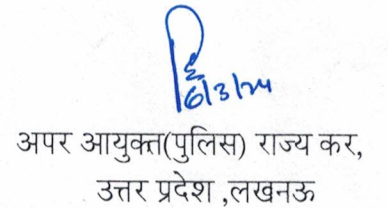 6/3/24
अपर आयुक्त(पुलिस) राज्य कर,
उत्तर प्रदेश ,लखनऊ